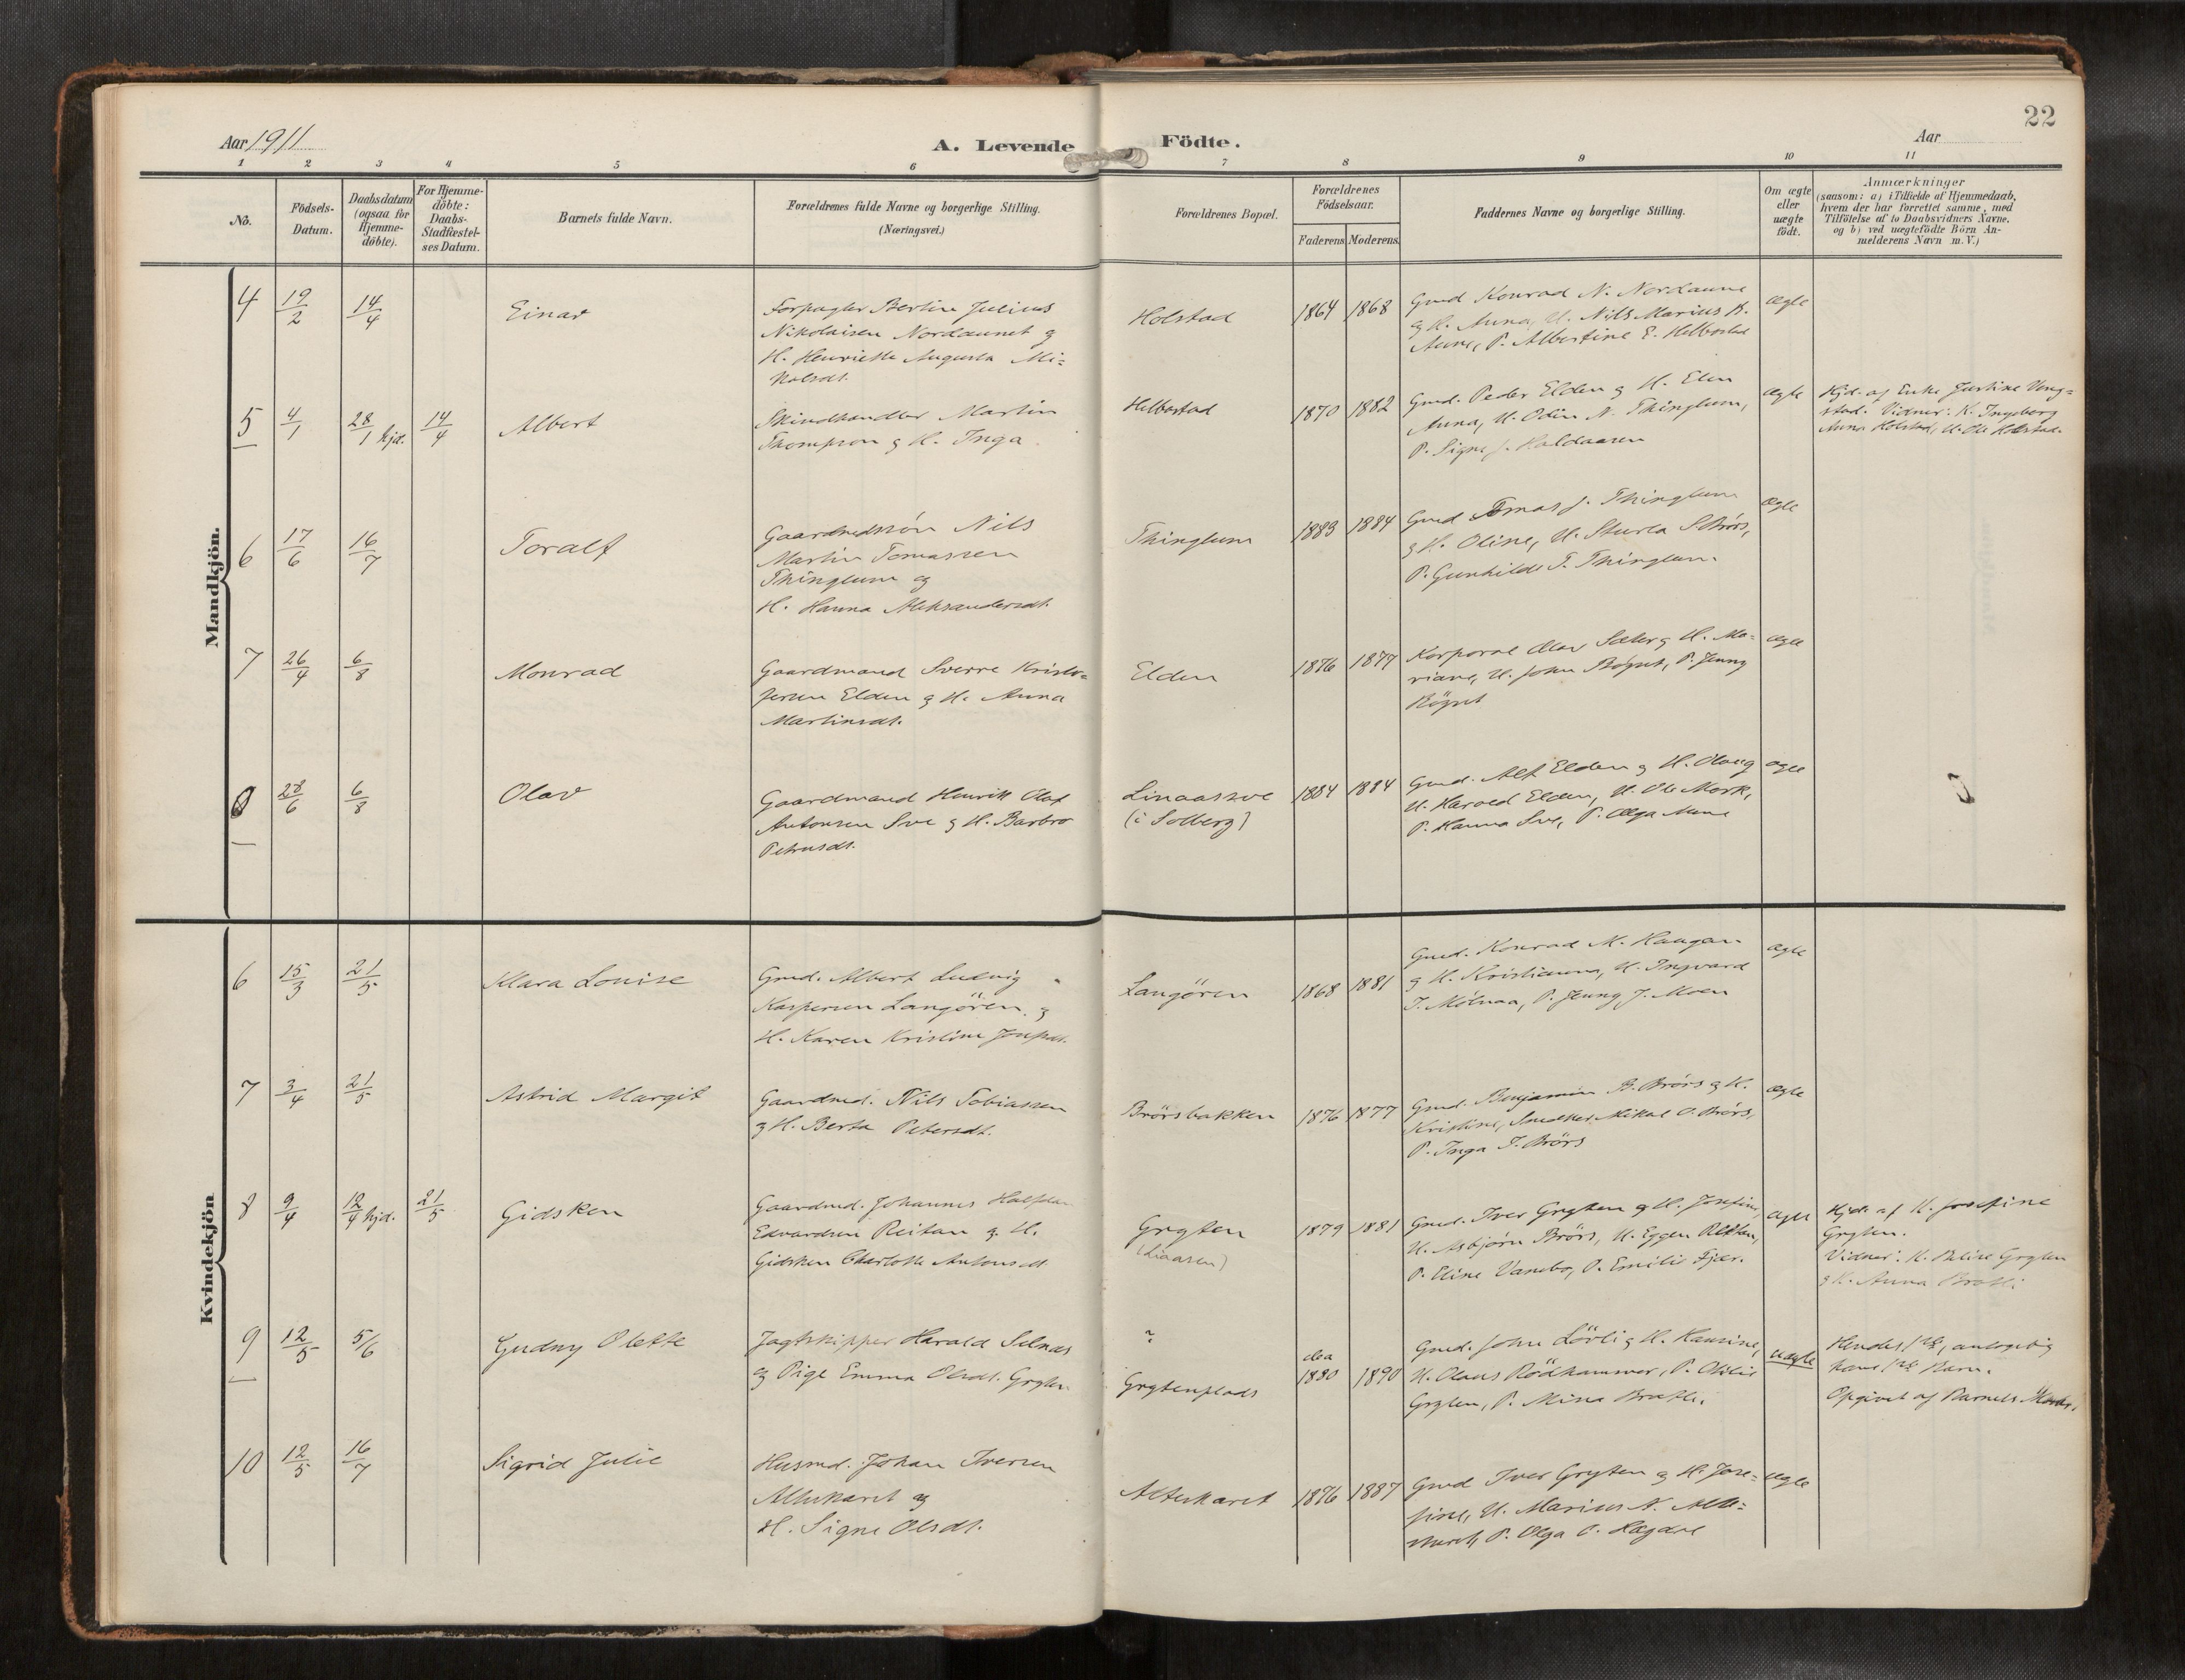 22
Aar 1911
A. Levende Födte.
Aar
1 2 3 4 5 6 7 8 9 10 11
No.
Födsels-
Datum.
Daabsdatum
(ogsaa for
Hjemme-
döbte).
For Hjemme-
döbte:
Daabs-
Stadfæstel-
ses Datum.
Barnets fulde Navn.
Forældrenes fulde Navne og borgerlige Stilling.
(Næringsvei.)
Forældrenes Bopæl.
Forældrenes
Födselsaar.
Faderens. Moderens.
Faddernes Navne og borgerlige Stilling.
Om ægte
eller
uægte
födt.
Anmærkninger
(saasom: a) i Tilfælde af Hjemmedaab,
hvem der har forrettet samme, med
Tilföielse af to Daabsvidners Navne,
og b) ved uægtefödte Börn An-
melderens Navn m. V.)
Mandkjön.
4 19/2 14/4 Einar
Forpagter Bertin Julius
Nikolaisen Nordaunet og
H. Henriette Augusta Mi-
kalsdt.
Holstad
1864 1868
Gmd Konrad N. Nordaune
og H. Anna, U. Nils Marius B.
Aune, P. Albertine E. Helbostad
ægte
5 4/1 28/1 hjd. 14/4 Albert
Skindhandler Martin
Thompson og H. Inga
Helbostad
1870 1882
Gmd. Peder Elden og H. Elen
Anna, U. Odin N. Thinglum,
P. Signe J. Haldaasen
ægte
Hjd. af Enke Justine Veng-
stad. Vidner: K. Ingeborg
Anna Holstad, U. Ole Holstad.
6 17/6 16/7 Toralf
Gaardmdssön Nils
Martin Tomassen
Thinglum og
H. Hanna Aleksandersdt.
Thinglum
1883 1884
Gmd Tomas J. Thinglum
og H. Oline, U. Sturla S. Brörs,
P. Gunhilde T. Thinglum.
ægte
7 26/4 6/8 Monrad
Gaardmand Sverre Kristo-
fersen Elden og H. Anna
Martinsdt.
Elden
1876 1877
Korporal Olav Sæter og H. Ma-
riane, U. John Bögset, P. Jenny
Bögset
ægte
8 28/6 6/8 Olav
Gaardmand Henrik Olaf
Antonsen Sve og H. Barbro
Petrusdt.
Linaassve
(i Solberg)
1884 1884
Gmd. Alf Elden og H. Olaug
U. Harald Elden, U. Ole Mork,
P. Hanna Sve, P. Olga Aune
ægte
Kvindekjön
6 15/3 21/5 Klara Louise
Gmd. Albert Ludvig
Kaspersen Langören og
H. Karen Kristine Josefsdt.
Langören
1868 1881
Gmd. Konrad M. Haugan
og H. Kristianna, U. Ingvard
T. Mölnaa, P. Jenny J. Moen
ægte
7 3/4 21/5 Astrid Margit
Gaardmd. Nils Tobiassen
og H. Berta Petersdt.
Brörsbakken
1876 1877
Gmd. Benjamin B. Brörs og H.
Kristine, Snedker Mikal O. Brörs,
P. Inga T. Brörs
ægte
8 9/4 12/4 hjd. 21/5 Gidsken
Gaardmd. Johannes Halfdan
Edvardsen Reitan og H.
Gidsken Charlotte Antonsdt
Grytten
(Liaasen)
1879 1881
Gmd. Iver Grytten og H. Josefine,
U. Asbjörn Brörs, U. Eggen Reitan,
P. Eline Vanebo, P. Emilie Fjær.
ægte
Hjd. af K. Josefine
Grytten.
Vidner: K. Grytten
og K. Anna Bratli.
9 12/5 5/6 Gudny Olette
Jagtskipper Harald Selnes
og Pige Emma Olsdt. Grytten
?
Gryttenplads
cka
1880 1890
Gmd. John Lövli og H. Hansine,
U. Olaus Rödhammer, P. Otilie
Grytten, P. Mina Bratli.
uægte
Hendes 1ste, antagelig
hans 1ste Barn.
Opgivet af Barnets Moder.
10 12/5 16/7 Sigrid Julie
Husmd. Johan Iversen
Alterkaret og
H. Signe Olsdt.
Alterkaret
1876 1887
Gmd Iver Grytten og H. Jose-
fine, U. Marius N. Alter-
karet, P. Olga O. Hægdal
ægte